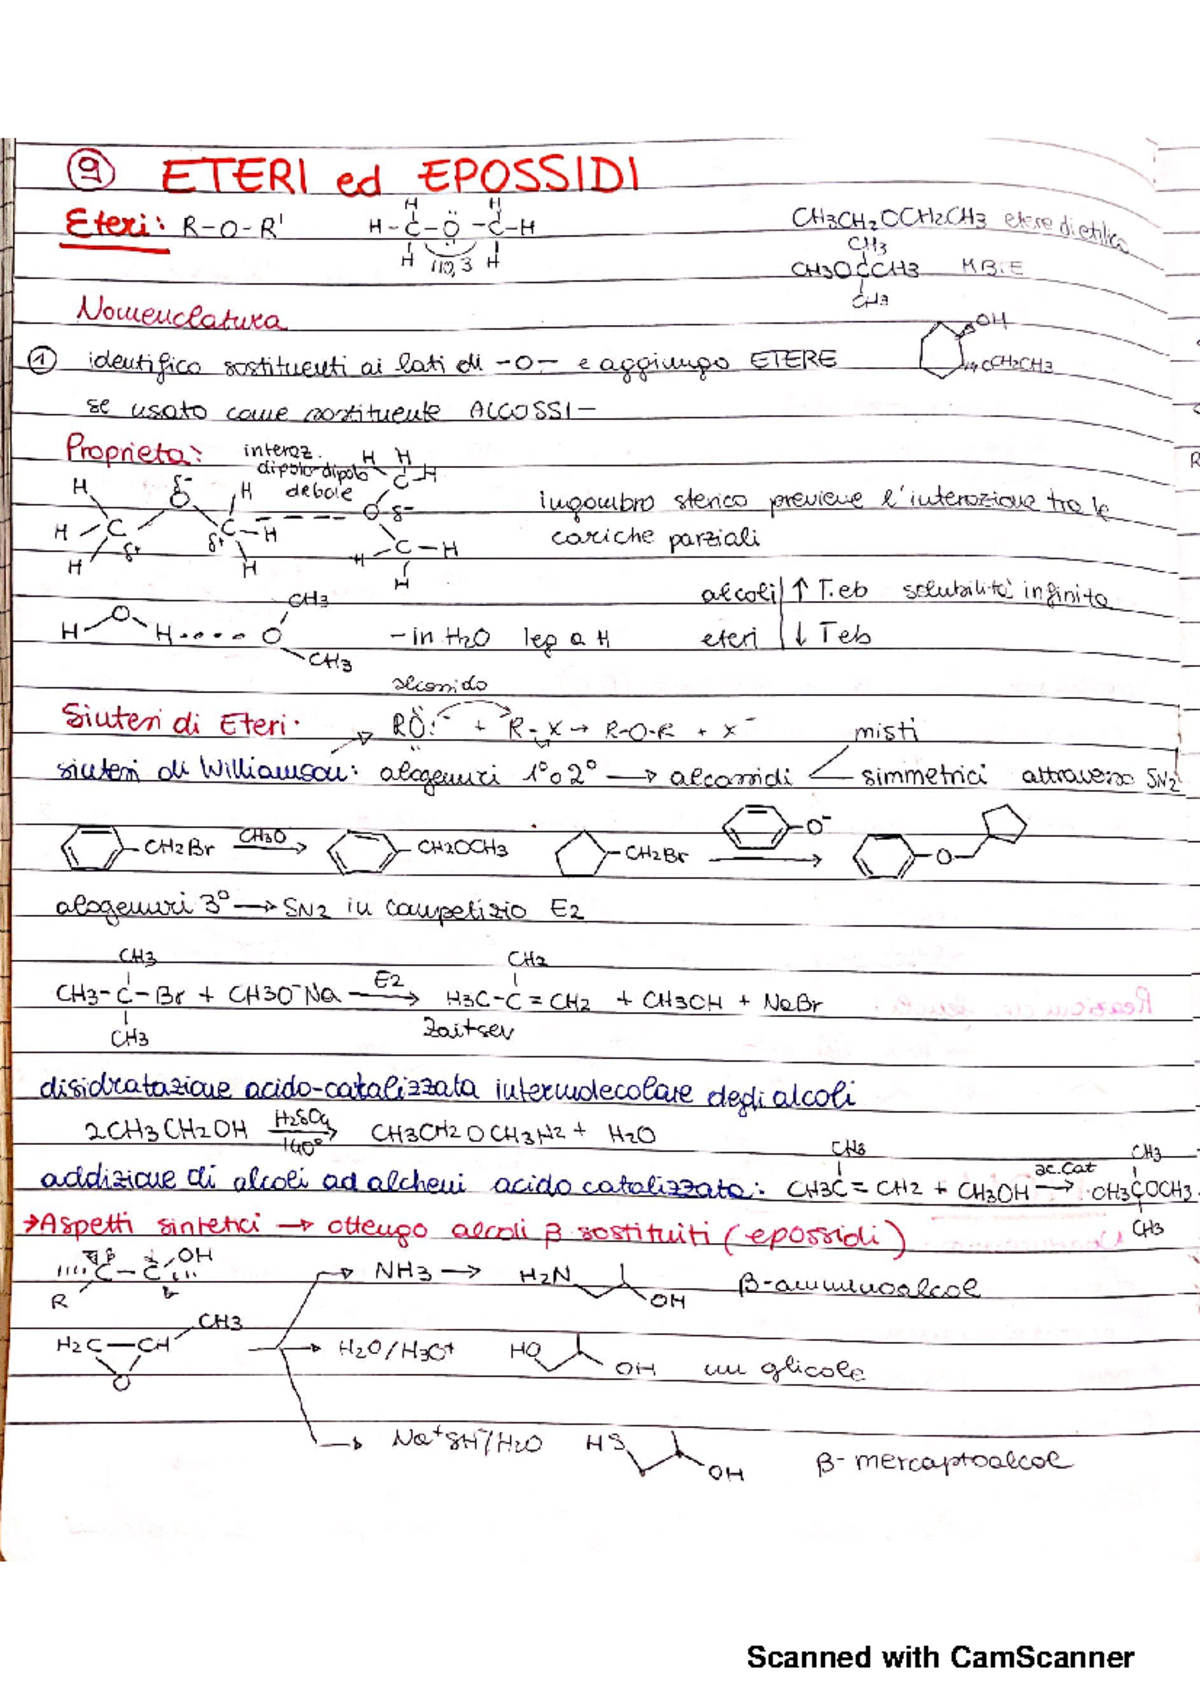 9 ETERI ed EPOSSIDI
Eteri: R-O-R'
H-C-Ö-C-H
H H
H 110,3 H
CH3CH2OCH2CH3 etere dietilico
CH3
CH3OCCH3 MBTE
CH3
Nomenclatura
OH
OCH2CH3
1 identifico sostituenti ai lati di -O- e aggiungo ETERE
se usato come sostituente ALCOSSI-
Proprietà: interaz. dipolo-dipolo debole
H H C H O δ- H C H δ+ δ+ H H
H H C-H O δ- C-H H H
ingombro sterico previene l'interazione tra le
cariche parziali
alcoli ↑ T.eb solubilità infinita
H O H .... O CH3 CH3 - in H2O leg a H eteri ↓ Teb
alcossido
Sintesi di Eteri: RÖ:- + R-X → R-O-R + X-
misti
sintesi di Williamson: alogenuri 1° o 2° → alcossidi simmetrici attraverso SN2
CH2Br CH3O → CH2OCH3 CH2Br O- → O
alogenuri 3° → SN2 in competizio E2
CH3 CH2
CH3-C-Br + CH3O-Na E2 → H3C-C=CH2 + CH3OH + NaBr
CH3 Zaitsev
disidratazione acido-catalizzata intermolecolare degli alcoli
2CH3CH2OH H2SO4 140° → CH3CH2OCH3H2 + H2O
CH3 CH3
addizione di alcoli ad alcheni acido catalizzata: CH3C=CH2 + CH3OH ac.cat → CH3COCH3
CH3
→ Aspetti sintetici → ottengo alcoli β sostituiti (epossidi)
β C-C OH R
→ NH3 → H2N OH β-amminoalcol
H2C-CH CH3 O
→ H2O/H3O+ HO OH un glicole
→ Na+SH-/H2O HS OH β-mercaptoalcol
Scanned with CamScanner